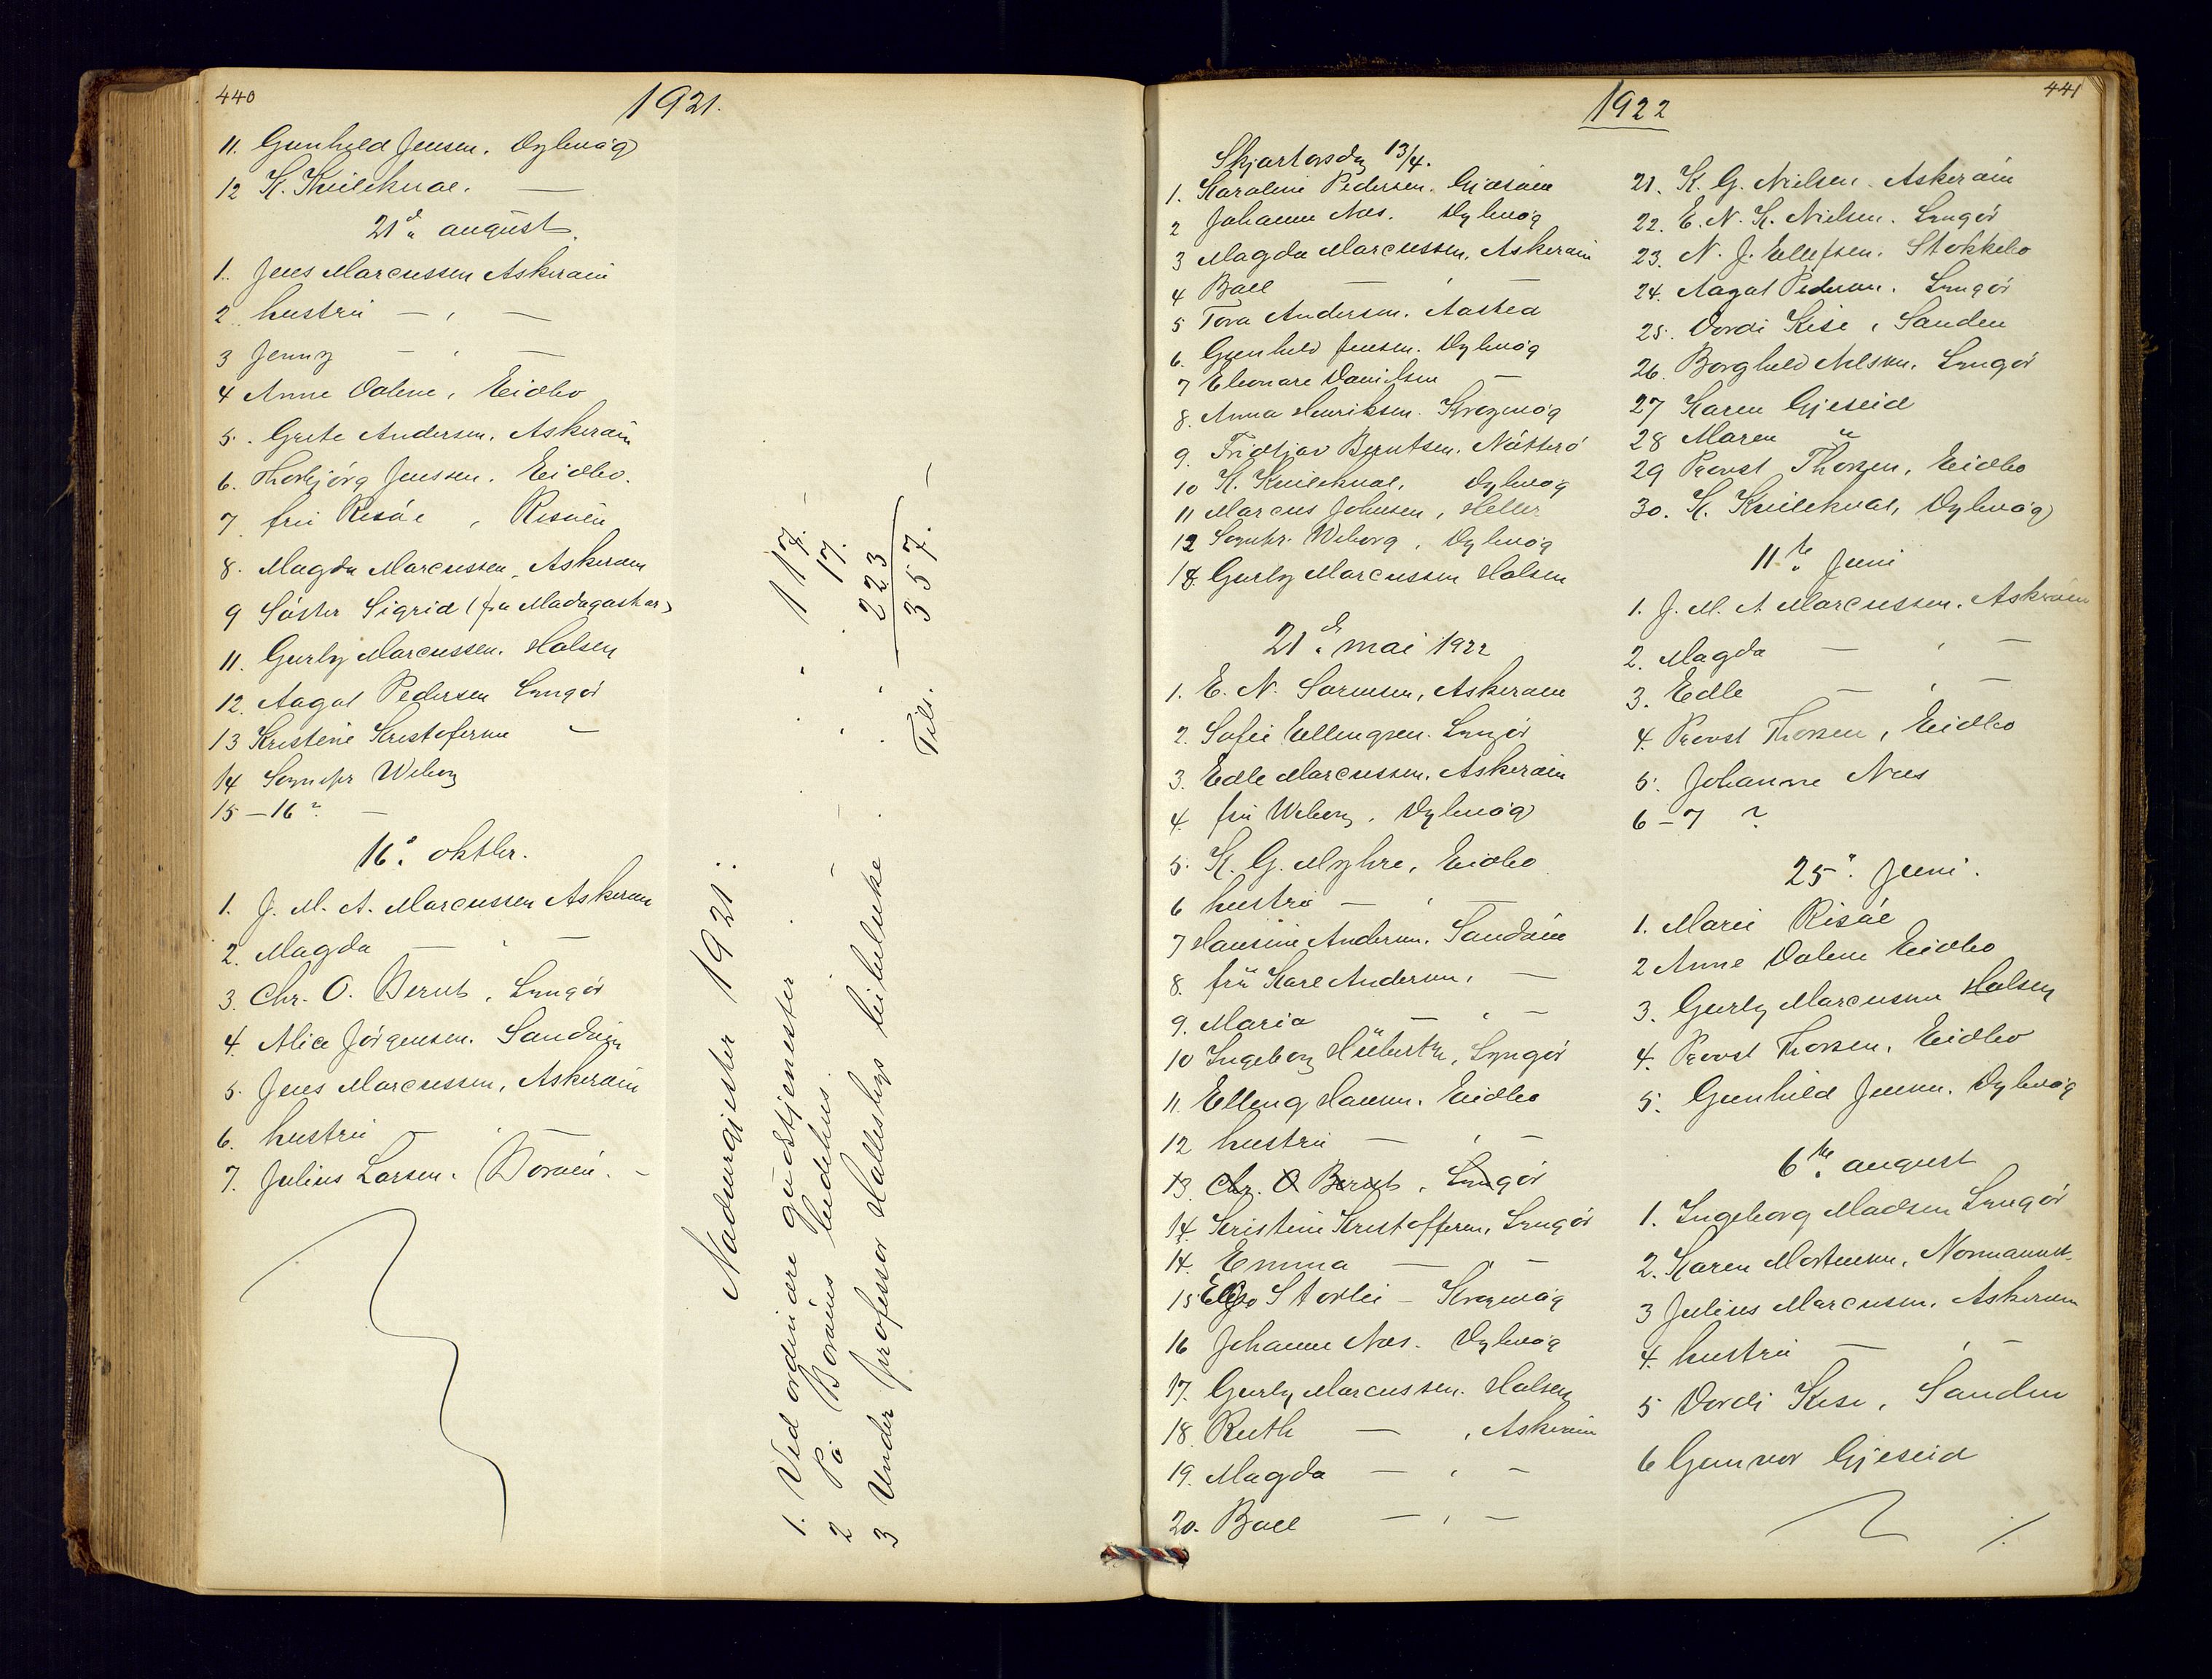 440
1921.
11. Gunhild Jensen. Dybvåg
12 K. Kvilekval. —
21de august.
1. Jens Marcussen Askerøin
2. hustru — , —
3 Jenny — , —
4 Anne Dalene, Eidbo
5. Grete Andersen, Askerøin
6. Thorbjørg Jenssen. Eidbo.
7. fru Risøe , Risøen
8. Magda Marcussen, Askerøen
9 Søster Sigrid (fra Madagaskar)
11. Gurly Marcussen. Holsen
12. Aagot Pedersen Lyngør
13 Kristine Kristofersen —
14 Sognepr Wiborg
15 – 16 ? —
16de oktbr.
1. J. M. A. Marcussen Askerøen
2. Magda — , —
3. Chr. O. Bernts, Lyngør
4. Alice Jørgensen. Sandøin
5. Jens Marcussen, Askerøin
6. hustru — , —
7. Julius Larsen. Borøen. —
Nadverdgjester 1921:
1. Ved ordinære gudstjenester . . . 117.
2 På Borøens bedehus. — . . . 17.
3 Under professor Hallesbys bibeluke . . . 223
Tils. 357. —
441
1922
Skjærtorsdag 13/4.
1. Karoline Pedersen. Gjøsøin
2 Johanne Næs. Dybvåg
3 Magda Marcussen, Askerøin
4 Boel — , —
5 Tora Andersen. Aasted
6. Gunhild Jensen. Dybvåg
7 Eleonare Danielsen —
8. Anna Henriksen. Krogvåg
9. Fridtjov Berntsen. Nötterö
10 K. Kvilekval, Dybvåg
11 Marcus Johnsen, Heller
12 Sognepr. Wiborg, Dybvåg
13. Gurly Marcussen Holsen
21de mai 1922
1. E. N. Sørensen, Askerøen
2. Sofie Ellingsen. Lyngør
3. Edle Marcussen, Askerøin
4. fru Wiborg, Dybvåg
5. K. G. Myhre, Eidbo
6 hustru — , —
7 Hansine Andersen. Sandøin
8. fru Kare Andersen, —
9. Maria — , —
10 Ingeborg Hübertz, Lyngør
11. Elling Hansen. Eidbo
12 hustru — , —
13. Chr. O Bernts, Lyngør
14. Kristine Kristoffersen, Lyngør
14. Emma — —
15 Storlei – Krogvåg
16 Johanne Næs. Dybvåg
17. Gurly Marcussen. Holsen
18. Ruth — , Askerøin
19. Magda — , —
20. Boel — , —
21. K. G. Nielsen. Askerøin
22. E. N. K. Nielsen. Lyngør
23. N. J. Ellefsen. Stokkebo
24. Aagot Pedersen. Lyngør
25. Dordi Kise, Sanden
26. Borghild Nilsen. Lyngør
27 Karen Gjeseid
28 Maren "
29 Provst Thorsen, Eidbo
30. K. Kvilekval, Dybvåg
11te Juni
1. J. M. A Marcussen. Askerøin
2. Magda — , —
3. Edle — , —
4. Provst Thorsen, Eidbo
5. Johanne Næs
6 – 7 ?
25de Juni.
1. Marie Risøe
2 Anne Dalene Eidbo
3. Gurly Marcussen Holsen
4. Provst Thorsen, Eidbo
5. Gunhild Jensen. Dybvåg
6te august
1. Ingeborg Madsen Lyngør
2. Karen Mortensen,
3 Julius Marcussen. Askerøen
4. hustru — , —
5 Dordi Kise, Sanden
6 Gunvor Gjeseid